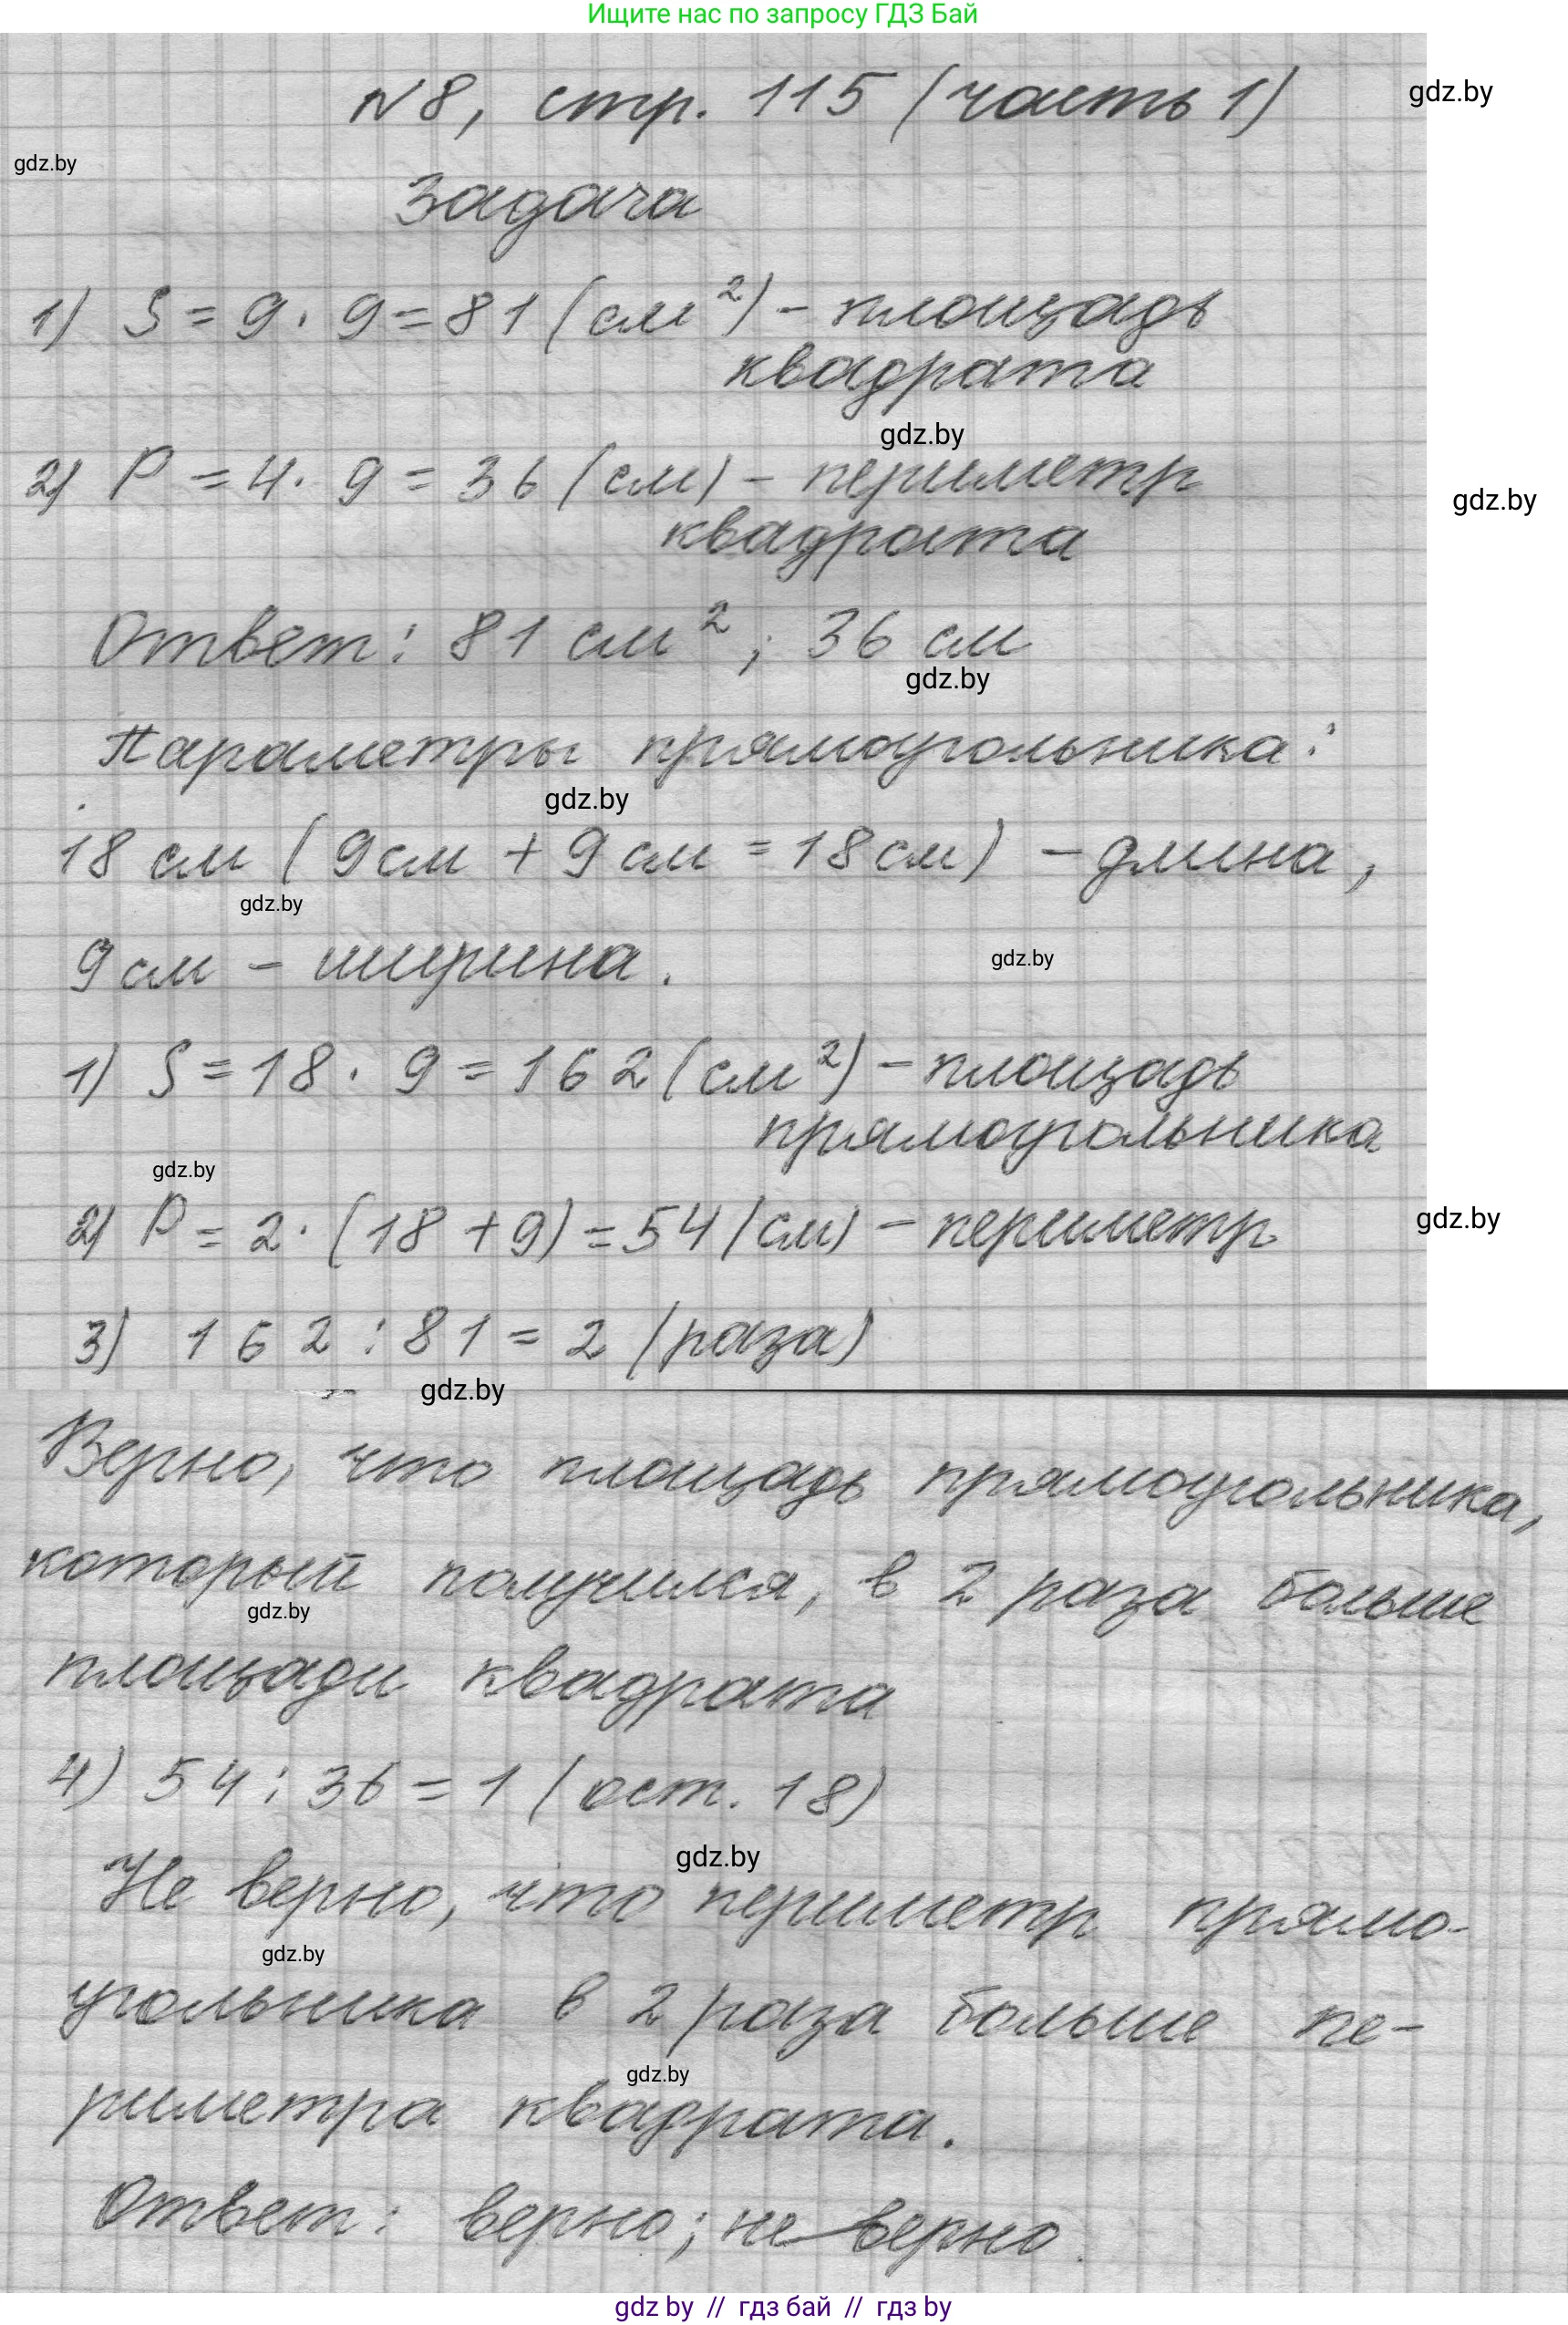 Ищите нас по запросу ГДЗ Бай
№8, стр. 115 (часть 1)
gdz.by
gdz.by
Задача
1) S = 9 · 9 = 81 (см²) - площадь
квадрата
gdz.by
2) P = 4 · 9 = 36 (см) - периметр
gdz.by
квадрата
Ответ: 81 см²; 36 см
gdz.by
Параметры прямоугольника:
gdz.by
18 см (9 см + 9 см = 18 см) - длина,
gdz.by
9 см - ширина.
gdz.by
1) S = 18 · 9 = 162 (см²) - площадь
прямоугольника
gdz.by
2) P = 2 · (18 + 9) = 54 (см) - периметр
gdz.by
3) 162 : 81 = 2 (раза)
gdz.by
Верно, что площадь прямоугольника,
который получился, в 2 раза больше
gdz.by
площади квадрата
4) 54 : 36 = 1 (ост. 18)
gdz.by
Не верно, что периметр прямо-
gdz.by
угольника в 2 раза больше пе-
gdz.by
риметра квадрата.
Ответ: верно; не верно.
gdz by // гдз бай // гдз by